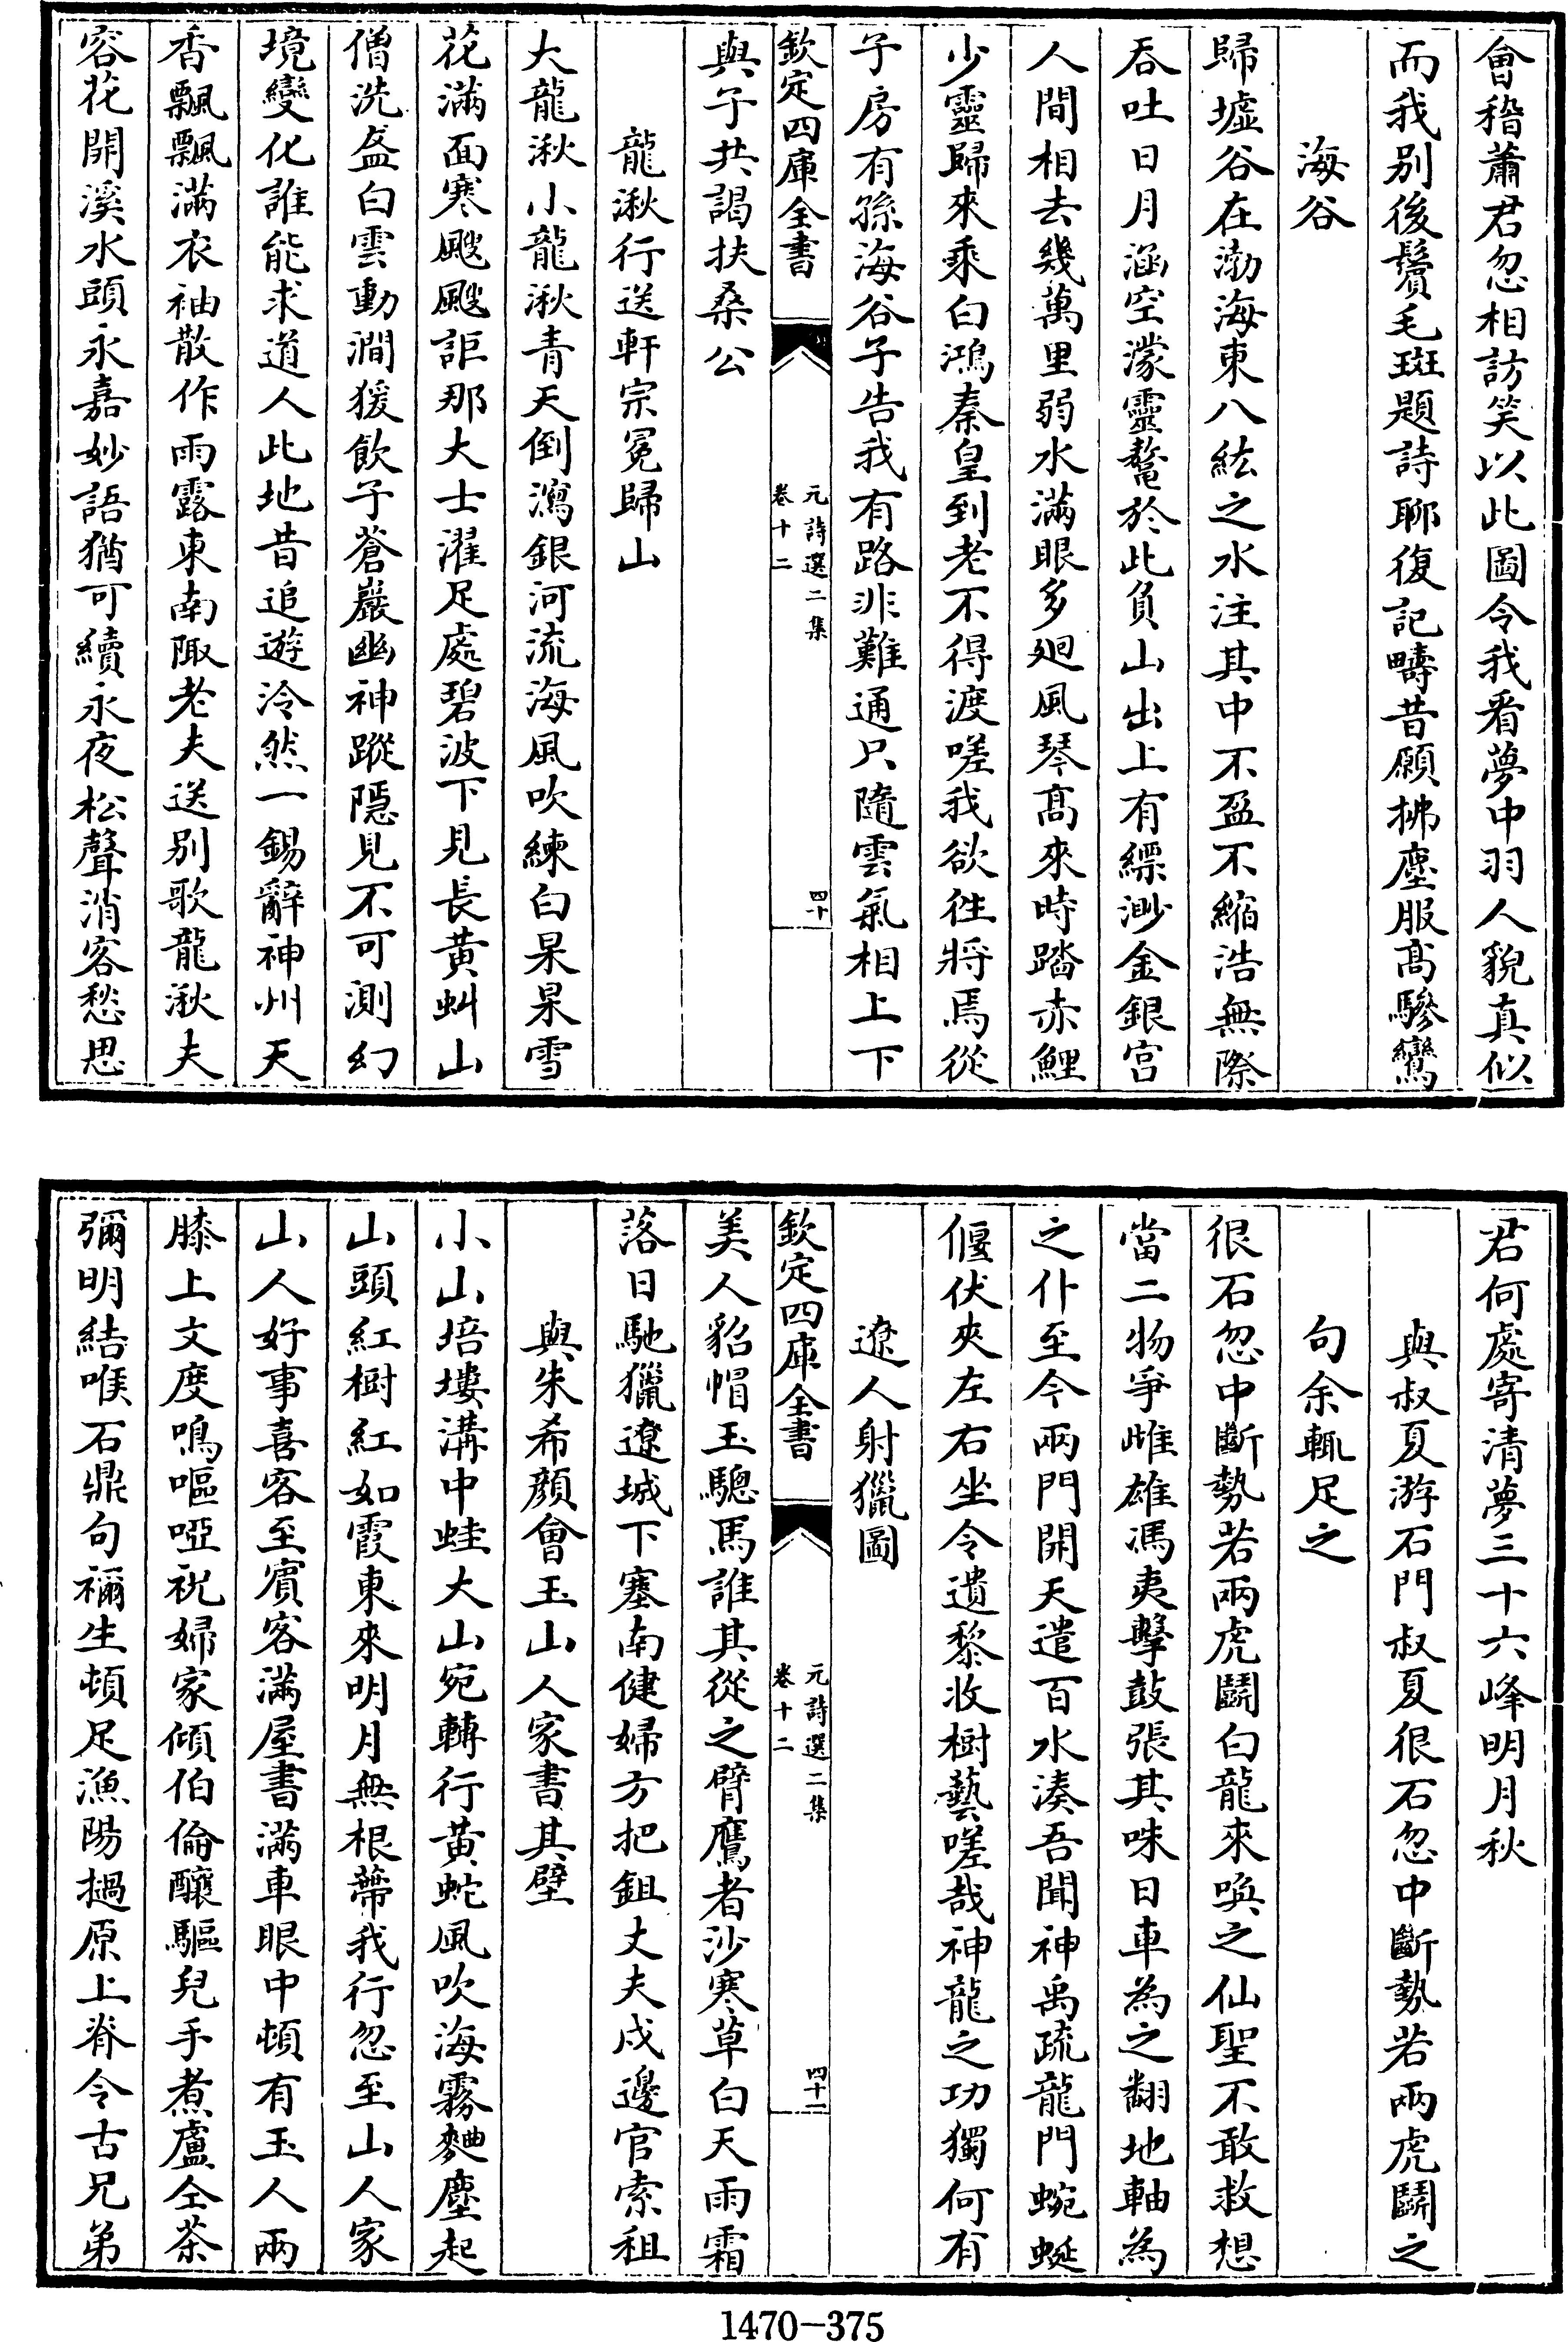 會稽蕭君忽相訪笑以此圖令我看夢中羽人貌真似
而我别後鬢毛斑題詩聊復記疇昔願拂塵服髙驂鸞
海谷
歸墟谷在渤海東八紘之水注其中不盈不縮浩無際
吞吐日月涵空濛靈鼇於此負山出上有縹渺金銀宫
人間相去幾萬里弱水滿眼多廻風琴髙來時踏赤鯉
少靈歸來乘白鴻秦皇到老不得渡嗟我欲徃將焉從
子房有孫海谷子告我有路非難通只隨雲氣相上下
欽定四庫全書
元詩選二集
卷十二
四十
與子共謁扶桑公
龍湫行送軒宗冕歸山
大龍湫小龍湫青天倒瀉銀河流海風吹練白杲杲雪
花滿面寒颼颼詎那大士濯足處碧波下見長黄虬山
僧洗盋白雲動澗猨飲子蒼巖幽神蹤隱見不可測幻
境變化誰能求道人此地昔追遊泠然一錫辭神州天
香飄飄滿衣袖散作雨露東南陬老夫送别歌龍湫夫
容花開溪水頭永嘉妙語猶可續永夜松聲消客愁思
君何處寄清夢三十六峰明月秋
與叔夏游石門叔夏很石忽中斷勢若兩虎鬭之
句余輒足之
很石忽中斷勢若兩虎鬭白龍來喚之仙聖不敢救想
當二物爭雌雄馮夷擊鼓張其咮日車為之翻地軸為
之仆至今兩門開天遣百水湊吾聞神禹疏龍門蜿蜒
偃伏夾左右坐令遺黎收樹藝嗟哉神龍之功獨何有
遼人射獵圖
欽定四庫全書
元詩選二集
卷十二
四十一
美人貂帽玉驄馬誰其從之臂鷹者沙寒草白天雨霜
落日馳獵遼城下塞南健婦方把鉏丈夫戍邊官索租
與朱希顔會玉山人家書其壁
小山培塿溝中蛙大山宛轉行黄蛇風吹海霧麯塵起
山頭紅樹紅如霞東來明月無根蔕我行忽至山人家
山人好事喜客至賓客滿屋書滿車眼中頓有玉人兩
膝上文度鳴嘔啞祝婦家傾伯倫釀驅兒手煮盧仝茶
彌明結喉石鼎句禰生頓足漁陽撾原上脊令古兄弟
1470-375